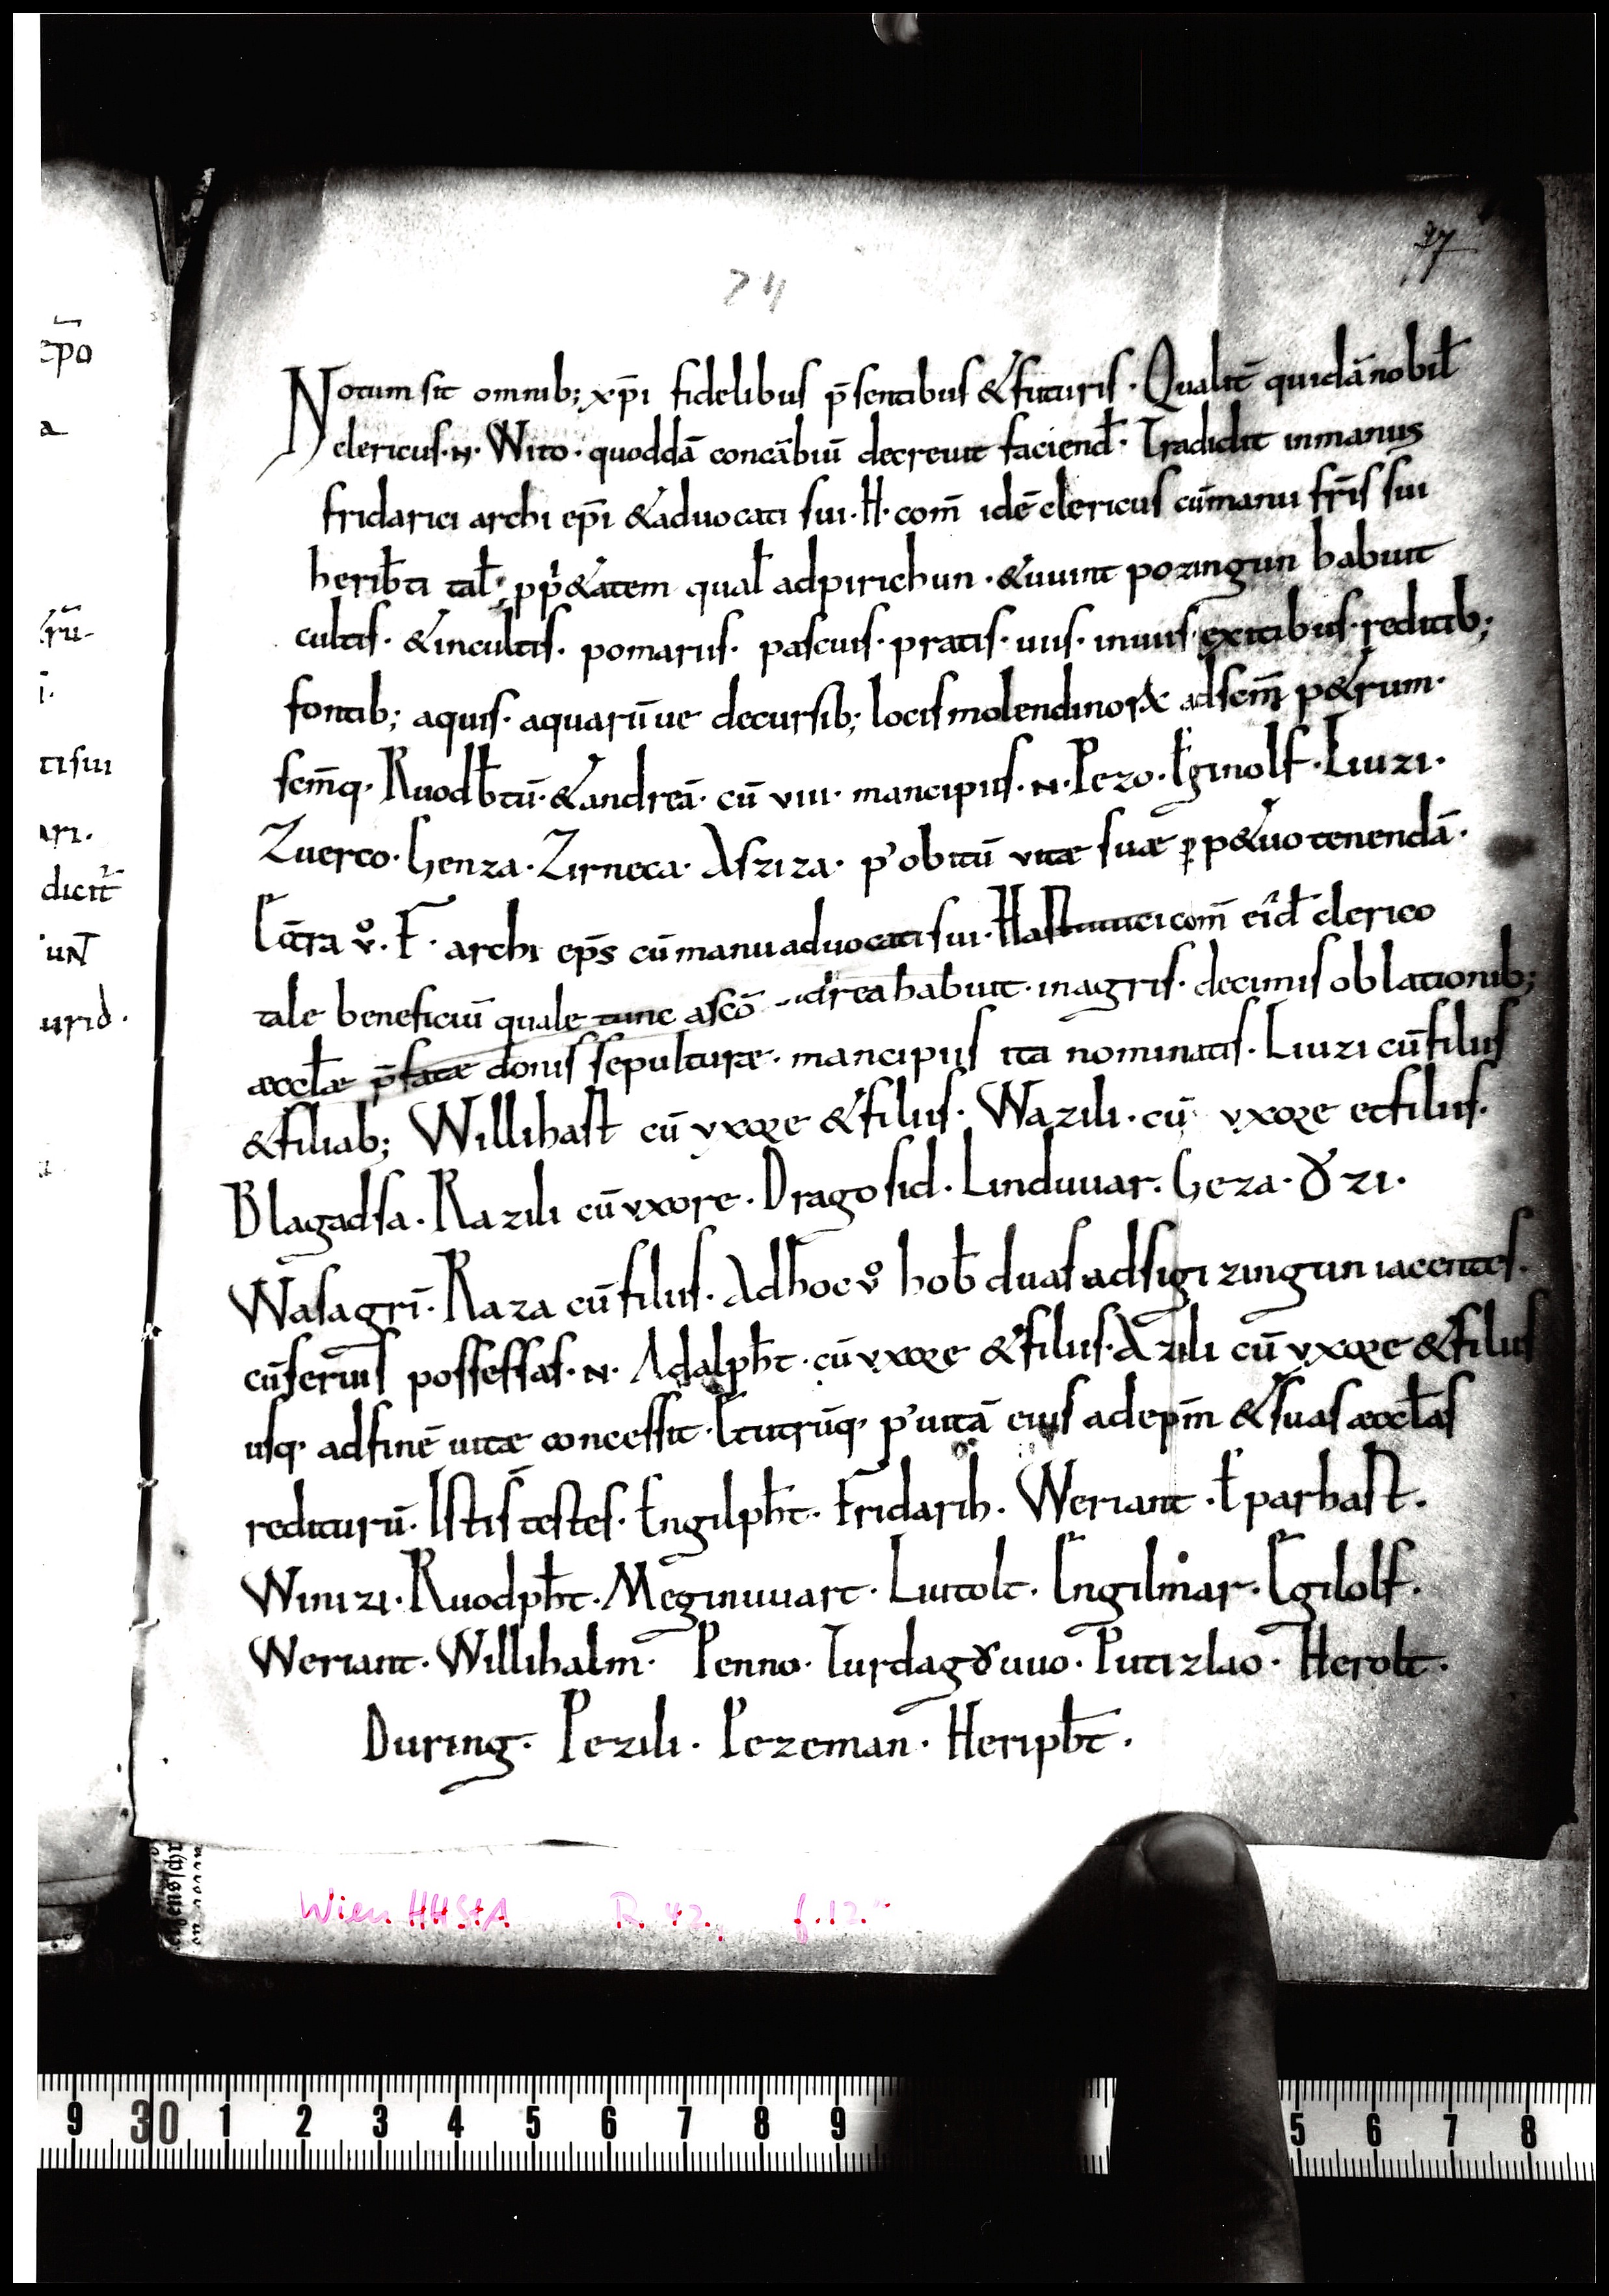 97
74
Notum sit omnib; xp̄i fidelibus p̄sentibus &futuris · Qualit̄ quidā nobił
clericus · N · Wito · quoddā concābiū decreuit faciend̄ · Tradidit inmanus
fridarici archi ep̄i &aduocati sui · H · com̄ idē clericus cūmanu fr̄is sui
herib̄ti tał; pp̍&atem qual̄ adpirichun · &uuint pozingun habuit
cultis · &incultis · pomariis · pascuis · pratis · uiis · inuiis · exitibus · reditib;
fontib; aquis · aquarūue decursib; locis molendinoꝝ adscm̄ p&rum ·
scm̄q · Ruodb̄tū · &andreā · cū viii · mancipiis · N · Pezo · Eginolf · Liuzi ·
Zuerco · Genza · Zirneca · Asziza · p' obitū vitæ suæ ꝑp&uo tenendā ·
Ec̄tra v̊ · F · archi ep̄s cū manu aduocati sui · Hartuuici com̄ eid̄ clerico
tale beneficiū quale tunc ascō andrea habuit · inagris · decimis oblationib;
æccłæ p̄fatæ donis sepulturæ · mancipiis ita nominatis · Liuzi cū filiis
&filiab; Willihast cū vxore &filiis · Wazili · cū vxore etfiliis ·
Blagadsa · Razili cū vxore · Dragosid · Linduuar · Geza · Ȣzi ·
Wasagrī · Raza cū filiis · Adhoc v̊ hob̄ duas adsigizingun iacentes ·
cūseruis possessas · N · Adalpħt · cū vxore &filiis · Azili cū vxore &filiis
usq· adfinē uitæ concessit · Etutrūq· p' uitā eius adep̄m &suas æccłas
rediturū · Istis testes · Engilpħt · Fridarih · Weriant · Eparhast ·
Winizi · Ruodpħt · Meginuuart · Liutolt · Engilmar · Egilolf ·
Weriant · Willihalm · Penno · Turdagȣuuo · Putizlao · Herolt ·
During · Pezili · Pezeman · Heripħt ·
Wien HHStA R. 42, f. 12
ep̄o
a
tisui
dicit̄
urid ·
9 30 1 2 3 4 5 6 7 8 9 5 6 7 8